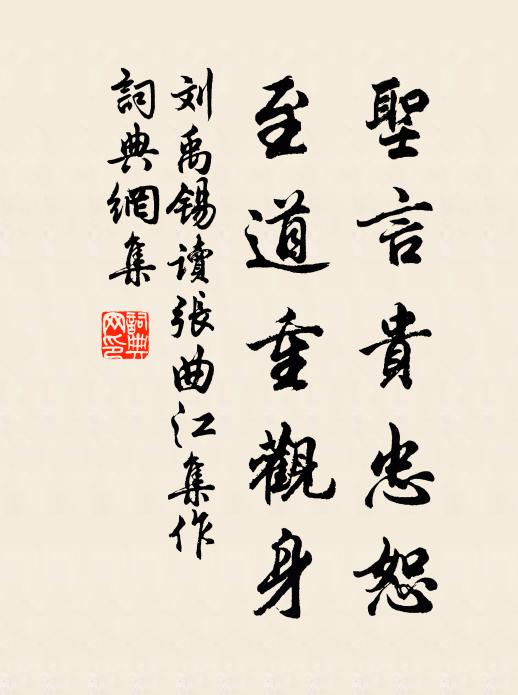 聖言貴忠恕
至道重觀身
刘禹锡讀張曲江集作
詞典網集
詞典
网印